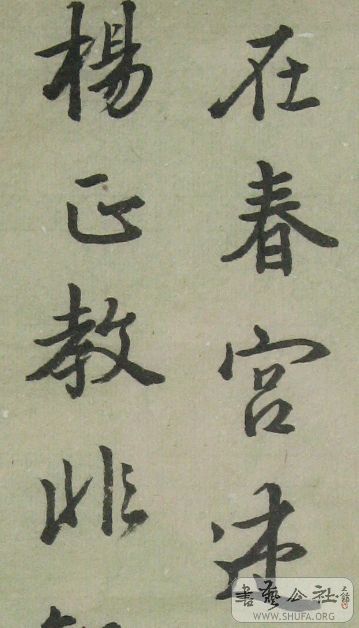 在春宮述
楊正教非
書藝公社
WWW.SHUFA.ORG